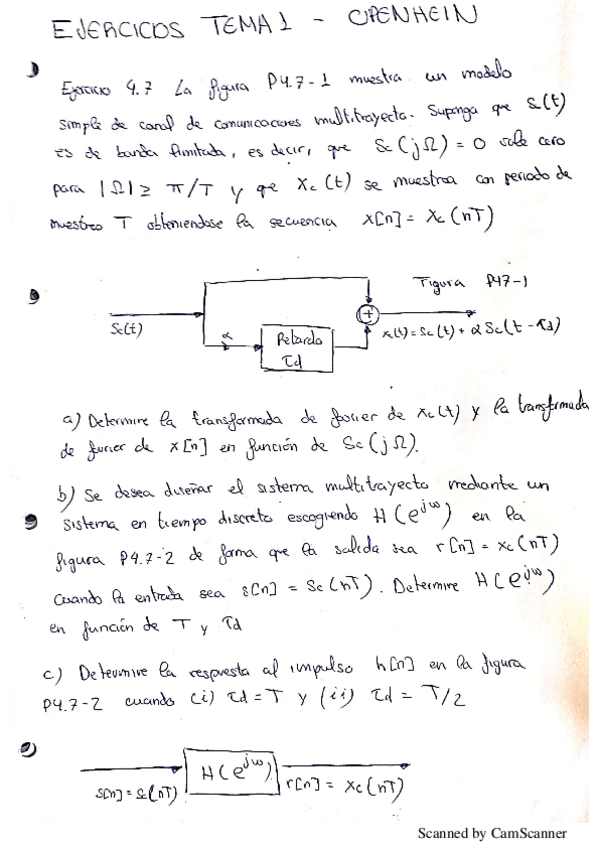 EJERCICIOS TEMA 1 - OPENHEIN
Ejercicio 4.7 La figura P4.7-1 muestra un modelo
simple de canal de comunicaciones multitrayecto. Suponga que Sc(t)
es de banda limitada, es decir, que Sc(jΩ) = 0 vale cero
para |Ω| ≥ π/T y que Xc(t) se muestrea con periodo de
muestreo T obteniendose la secuencia x[n] = Xc(nT)
Figura P4.7-1
Sc(t)
α
Retardo
τd
+
xc(t) = Sc(t) + α Sc(t - τd)
a) Determine la transformada de fourier de xc(t) y la transformada
de fourier de x[n] en función de Sc(jΩ).
b) Se desea diseñar el sistema multitrayecto mediante un
sistema en tiempo discreto escogiendo H(e^jω) en la
figura P4.7-2 de forma que la salida sea r[n] = xc(nT)
cuando la entrada sea s[n] = Sc(nT). Determine H(e^jω)
en función de T y τd
c) Determine la respuesta al impulso h[n] en la figura
P4.7-2 cuando (i) τd = T y (ii) τd = T/2
s[n] = sc(nT)
H(e^jω)
r[n] = Xc(nT)
Scanned by CamScanner